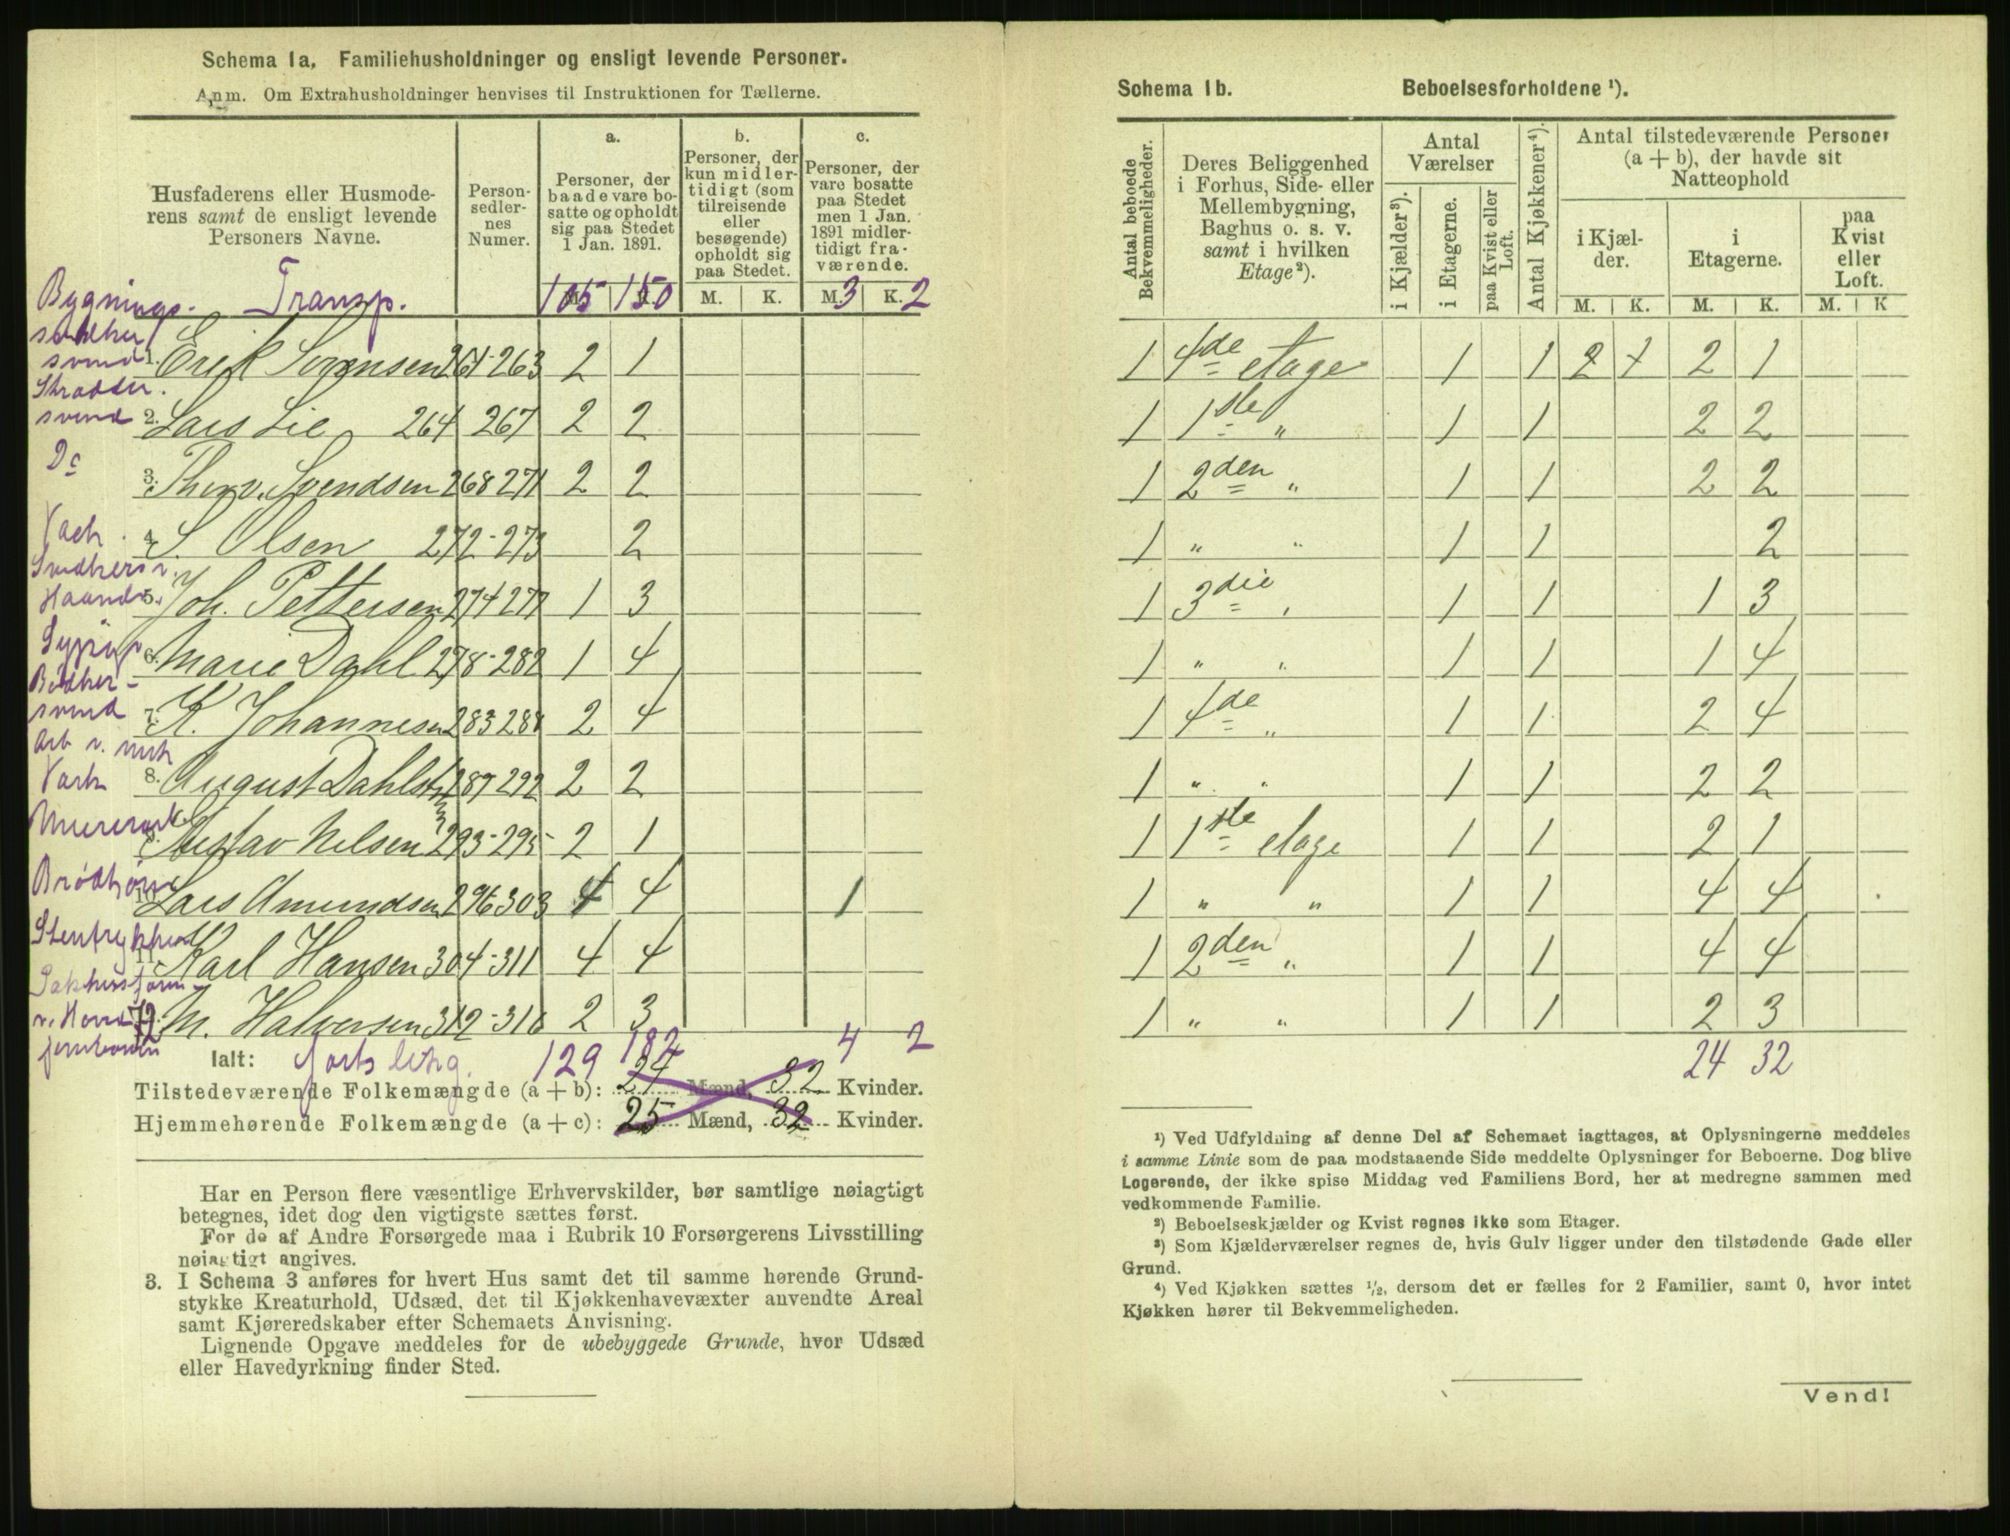 Schema 1a. Familiehusholdninger og ensligt levende Personer.
Anm. Om Extrahusholdninger henvises til Instruktionen for Tællerne.
Husfaderens eller Husmoderens samt de ensligt levende Personers Navne.
Personsedlernes Numer.
a. Personer, der baade vare bosatte og opholdt sig paa Stedet 1 Jan. 1891.
b. Personer, der kun midlertidigt (som tilreisende eller besøgende) opholdt sig paa Stedet.
c. Personer, der vare bosatte paa Stedet men 1 Jan. 1891 midlertidigt fraværende.
M. K. M. K. M. K.
Transp. 105 150 3 2
Bygnings-
svend
1. Erik Sørensen 261-263 2 1
Skrædder.
svend
2. Lars Lie 264 267 2 2
Do
3. Thorv. Svendsen 268 271 2 2
4. S. Olsen 272-273 2
5. Joh. Pettersen 274 277 1 3
6. Marie Dahl 278-282 1 4
Bödker-
svend
7. K. Johannesen 283 288 2 4
8. August Dahlst 287 292 2 2
9. Gustav Nilsen 293-295 2 1
10. Lars Amundsen 296 303 4 4 1
11. Karl Hansen 304-311 4 4
12. M. Halvorsen 312-316 2 3
Ialt: 129 182 4 2
Tilstedeværende Folkemængde (a + b): 24 Mænd, 32 Kvinder.
Hjemmehørende Folkemængde (a + c): 25 Mænd, 32 Kvinder.
Har en Person flere væsentlige Erhvervskilder, bør samtlige nøiagtigt
betegnes, idet dog den vigtigste sættes først.
For de af Andre Forsørgede maa i Rubrik 10 Forsørgerens Livsstilling
nøiagtigt angives.
3. I Schema 3 anføres for hvert Hus samt det til samme hørende Grund-
stykke Kreaturhold, Udsæd, det til Kjøkkenhavevæxter anvendte Areal
samt Kjøreredskaber efter Schemaets Anvisning.
Lignende Opgave meddeles for de ubebyggede Grunde, hvor Udsæd
eller Havedyrkning finder Sted.
Schema 1b. Beboelsesforholdene ¹).
Antal beboede Bekvemmeligheder.
Deres Beliggenhed i Forhus, Side- eller Mellembygning, Baghus o. s. v. samt i hvilken Etage ²).
Antal Værelser
i Kjælder ³). i Etagerne. paa Kvist eller Loft.
Antal Kjøkkener ⁴).
Antal tilstedeværende Personer (a + b), der havde sit Natteophold
i Kjælder. i Etagerne. paa Kvist eller Loft.
M. K. M. K. M. K
1 4de etage 1 1 2 1 2 1
1 1ste " 1 1 2 2
1 2den " 1 1 2 2
1 " " 1 1 2
1 3die " 1 1 1 3
1 " " 1 1 1 4
1 4de " 1 1 2 4
1 " " 1 1 2 2
1 1ste etage 1 1 2 1
1 " " 1 1 4 4
1 2den " 1 1 4 4
1 " " 1 1 2 3
24 32
¹) Ved Udfyldning af denne Del af Schemaet iagttages, at Oplysningerne meddeles
i samme Linie som de paa modstaaende Side meddelte Oplysninger for Beboerne. Dog blive
Logerende, der ikke spise Middag ved Familiens Bord, her at medregne sammen med
vedkommende Familie.
²) Beboelseskjælder og Kvist regnes ikke som Etager.
³) Som Kjælderværelser regnes de, hvis Gulv ligger under den tilstødende Gade eller
Grund.
⁴) Ved Kjøkken sættes ½, dersom det er fælles for 2 Familier, samt 0, hvor intet
Kjøkken hører til Bekvemmeligheden.
Vend!